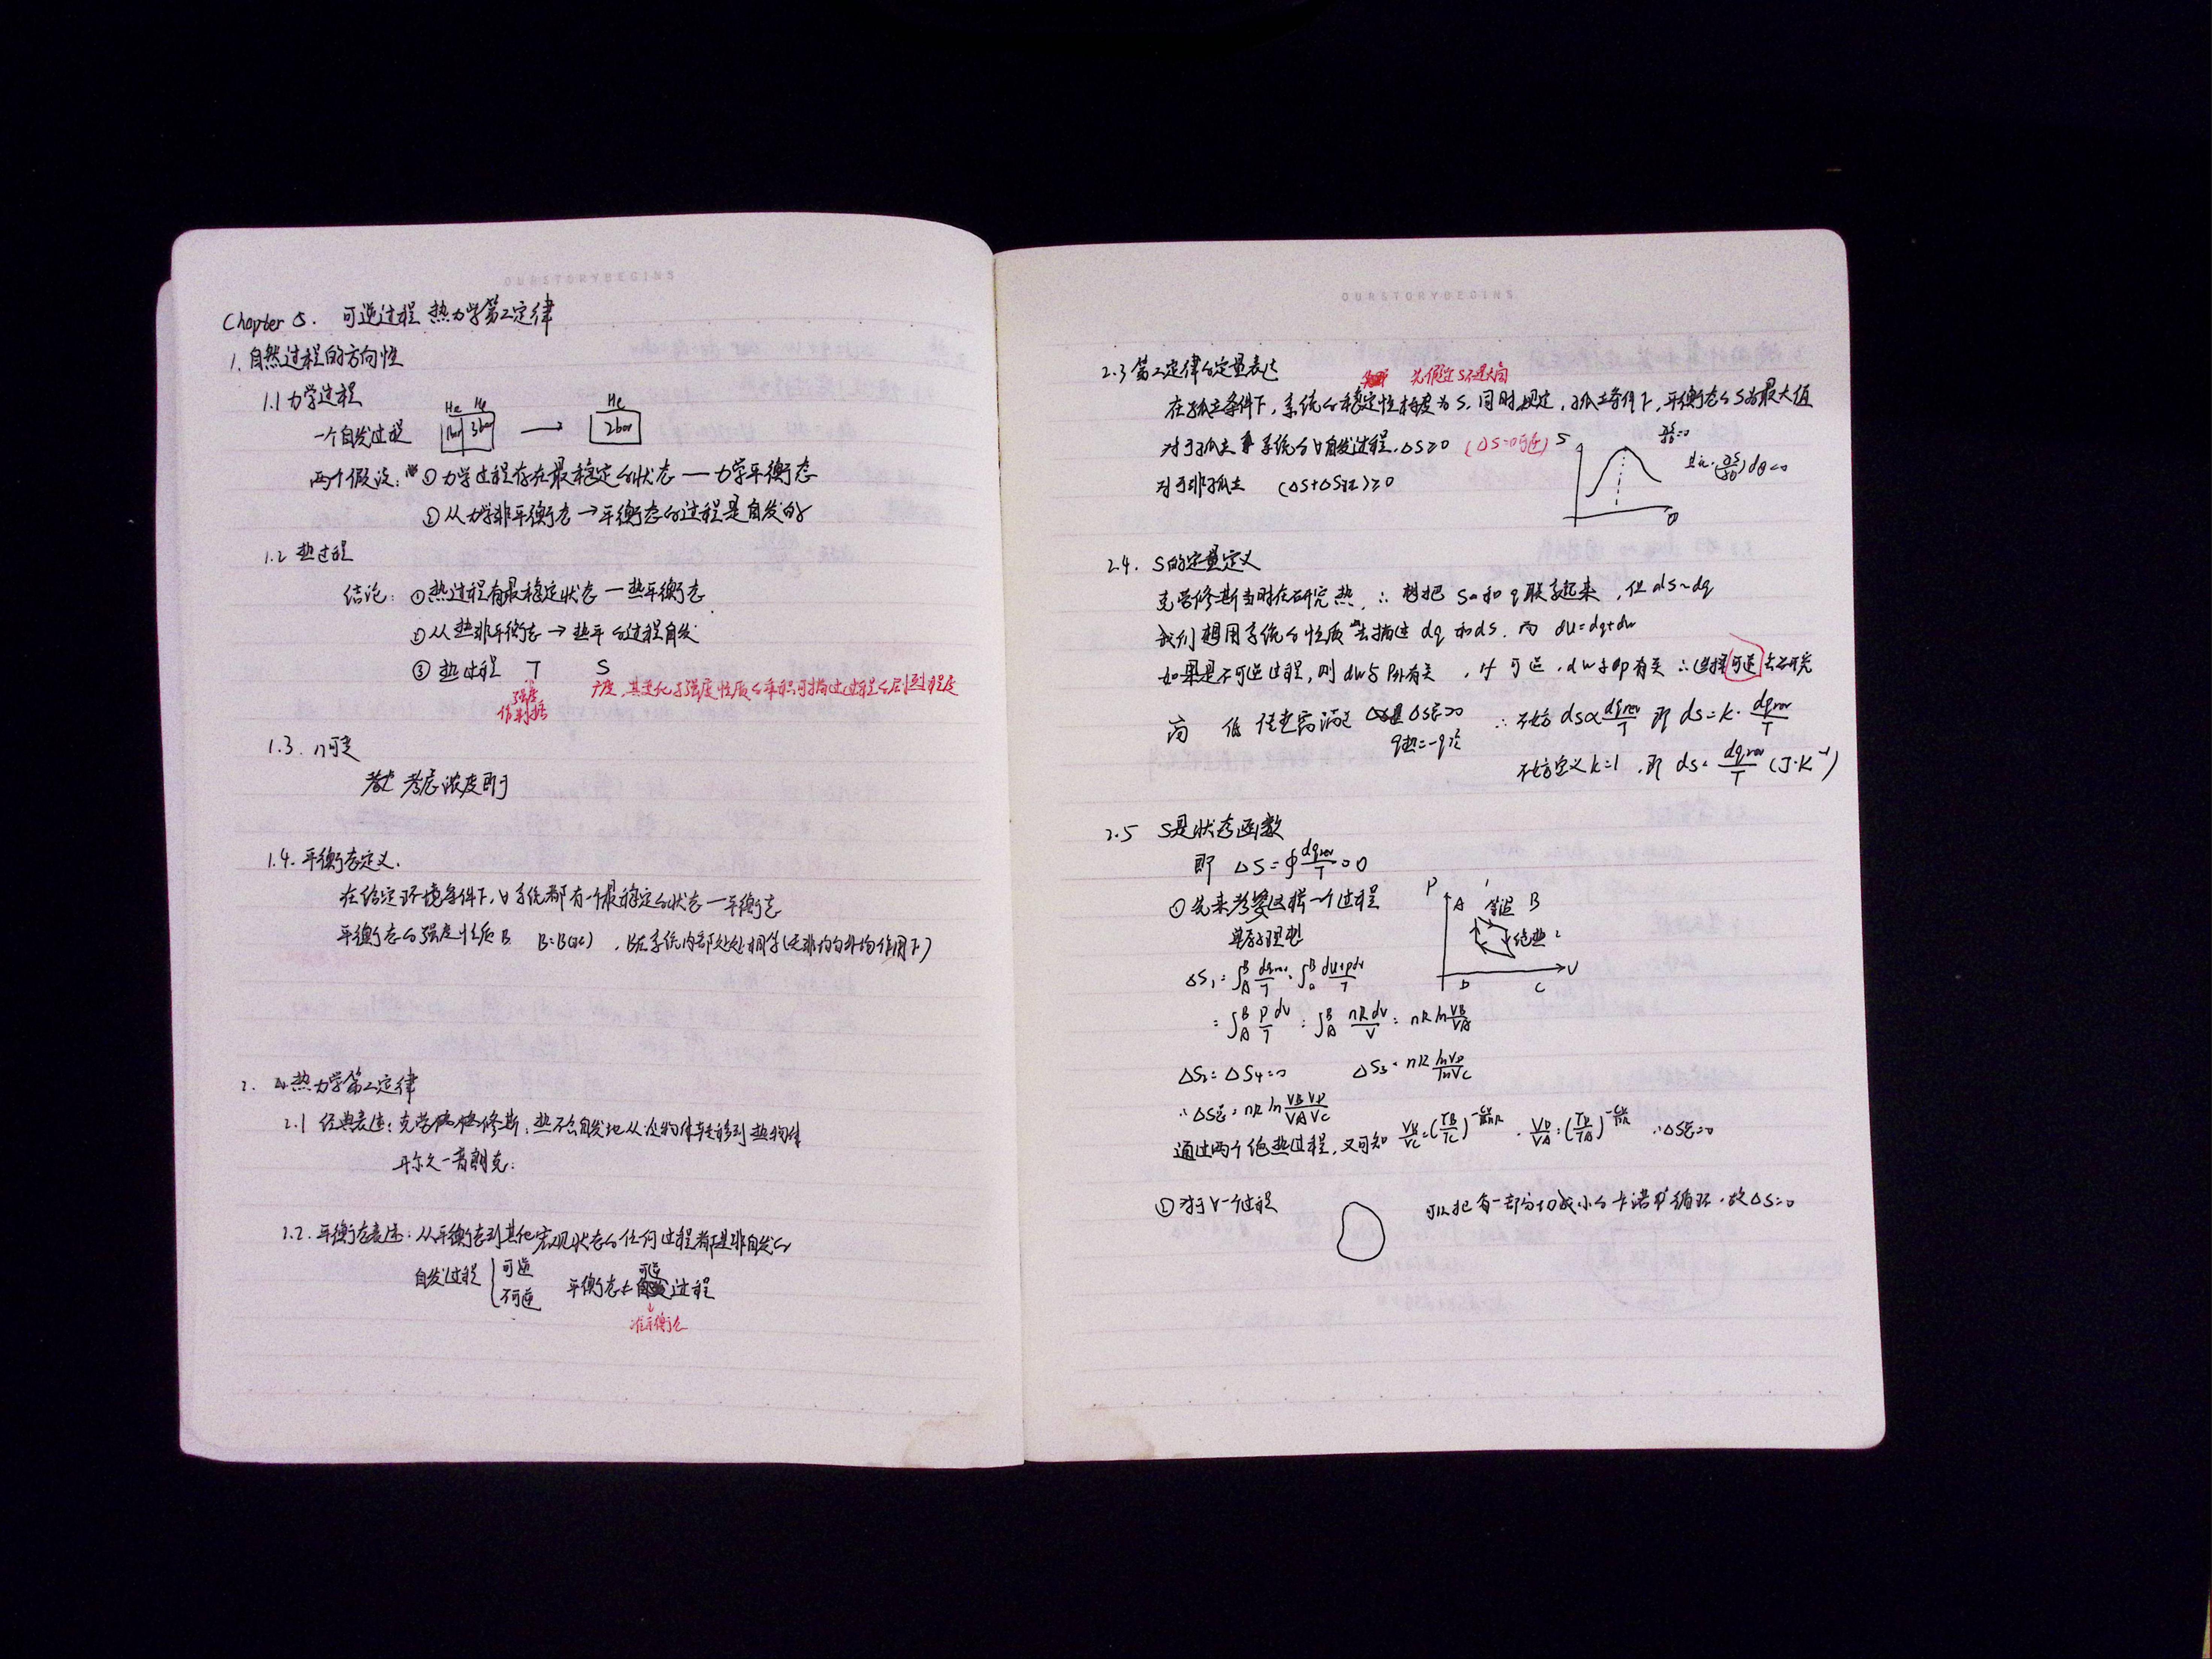 OURSTORYBEGINS
Chapter 5. 可逆过程 热力学第二定律
1. 自然过程的方向性
1.1 力学过程
He He He
一个自发过程 1bar 3bar → 2bar
两个假设: ①力学过程存在最稳定的状态—力学平衡态
②从力学非平衡态→平衡态的过程是自发的
1.2 热过程
结论: ①热过程有最稳定状态—热平衡态
②从热非平衡态→热平的过程自发
③热过程 T S
强度 作判据
广度,其变化与强度性质的乘积可描述过程的 程度
1.3. n可变
考虑浓度即可
1.4. 平衡态定义.
在给定环境条件下,∀系统都有一个最稳定的状态—平衡态
平衡态的强度性质B B=B(x) ,B在系统内部处处相等(无非均匀外场作用下)
2. 热力学第二定律
2.1 经典表述: 克劳修斯:热不会自发地从冷物体转移到热物体
开尔文-普朗克:
2.2. 平衡态表述:从平衡态到其他宏观状态的任何过程都是非自发的
自发过程 { 可逆 不可逆 平衡态± 可逆 过程
准平衡态
OURSTORYBEGINS
2.3 第二定律的定量表达
先假定S不是熵
在孤立条件下,系统的稳定性标度为S.同时规定,孤立条件下,平衡态的S为最大值
对于孤立系统的∀自发过程.ΔS≥0 (ΔS=0可逆) S
对于非孤立 (ΔS+ΔS环)≥0
θ
2.4. S的定量定义
克劳修斯当时在研究热,∴想把S和q联系起来,但ds~dq
我们想用系统的性质去描述dq和ds.而 du=dq+dw
如果是不可逆过程,则dw与P外有关,if可逆,dw与p有关∴选择可逆去研究
高 低 任走需满足 ΔS总>0 ∴不妨 ds∝dqrev/T 即 ds=k·dqrev/T
q热=-q冷
不妨定义k=1,即 ds=dqrev/T (J·K⁻¹)
2.5 S是状态函数
即 ΔS=∮dqrev/T=0
①先来考虑这样一个过程 P A 等温 B
绝热 2
D C V
ΔS₁=∫ᴬᴮ dqrev/T=∫ᴮ (du+pdv)/T
=∫ᴬᴮ P/T dv=∫ᴬᴮ nRdv/V=nR ln VB/VA
ΔS₂=ΔS₄=0 ΔS₃=nR lnVD/lnVC
∴ΔS总=nR ln VB VD/VA VC
通过两个绝热过程,又可知 ∴ΔS总=0
②对于∀一个过程 可以把每一部分切成小的卡诺循环,故ΔS=0